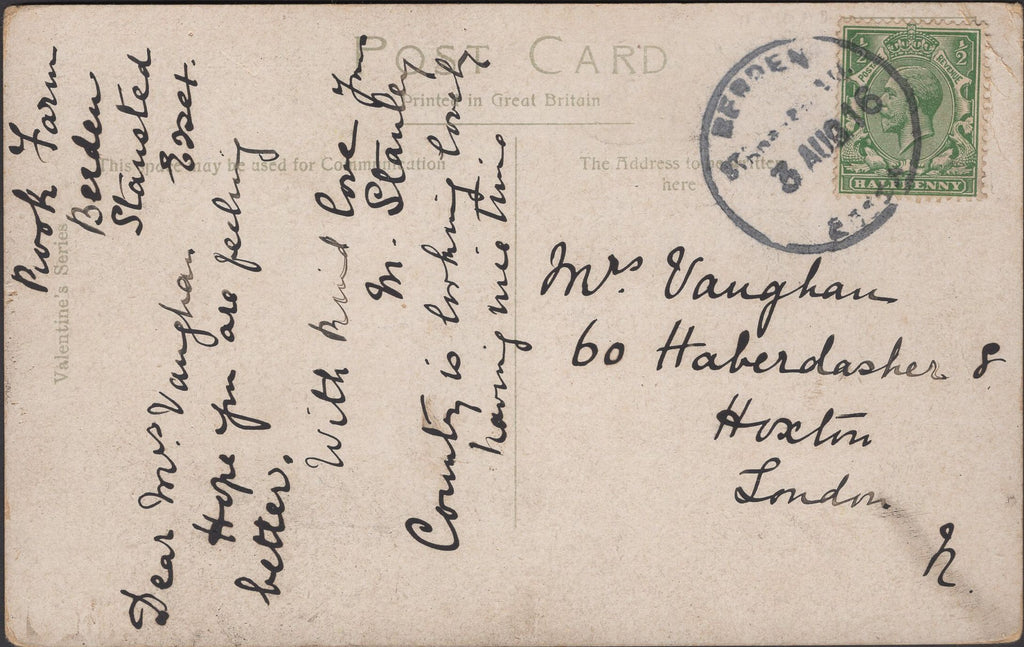 POST CARD
Printed in Great Britain
This space may be used for Communication
The Address to be written
here
Valentine's Series
½ ½
POSTAGE REVENUE
HALFPENNY
BERDEN
3 AU 16
ESSEX
Rook Farm
Berden
Stansted
Essex.
Dear Mrs. Vaughan
Hope you are feeling
better.
With kind love from
M. Stanley
Country is looking lovely
having nice time
Mrs Vaughan
60 Haberdasher S
Hoxton
London
N